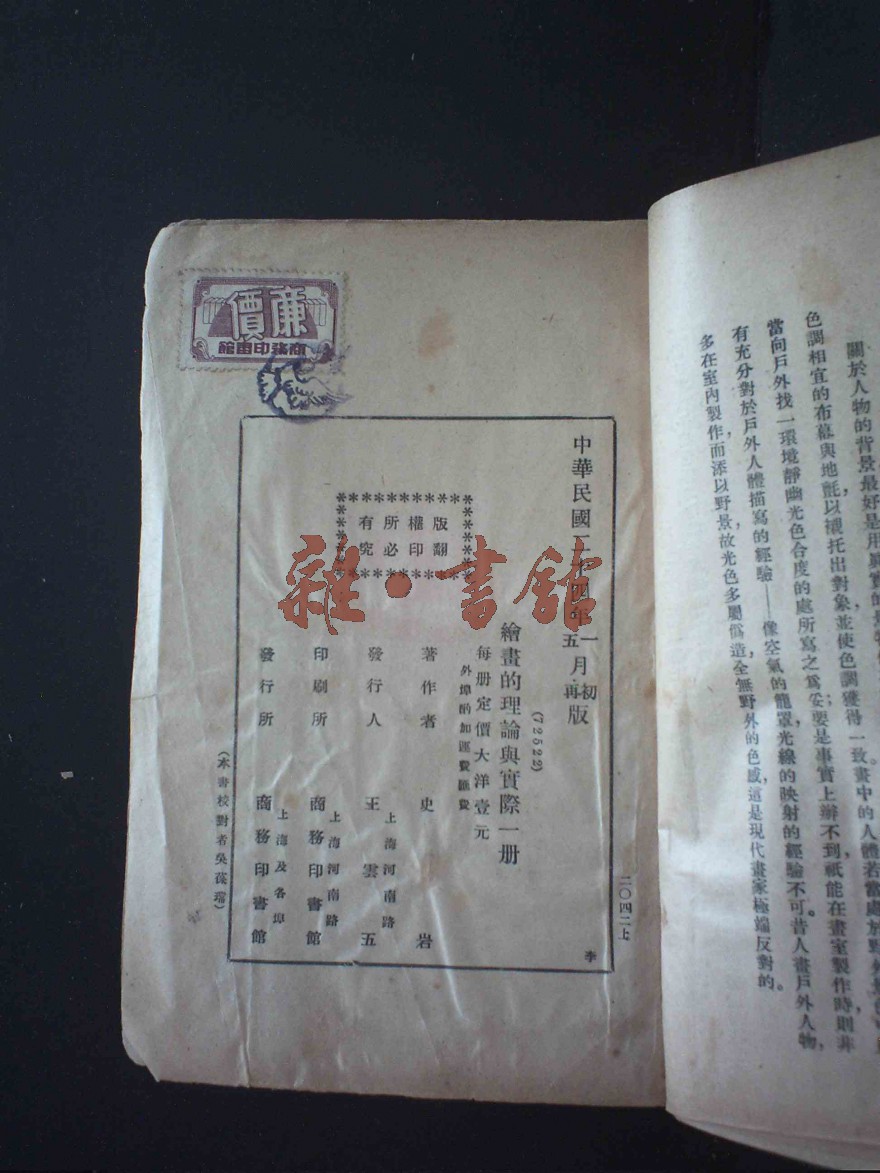 關於人物的背景最好是用眞實的
色調相宜的布幕與地氈以襯托出對象並使色調獲得一致。畫中的人體若當處於野外
當向戶外找一環境靜幽光色合度的處所寫之爲妥要是事實上辦不到祇能在畫室製作時則非
有充分對於戶外人體描寫的經驗——像空氣的籠罩光線的映射的經驗不可。昔人畫戶外人物,
多在室內製作,而添以野景故光色多屬僞造,全無野外的色感這是現代畫家極端反對的。
廉價
商務印書館
二〇四二上
李
中華民國二十四年一月初版
五月再版
(72522)
繪畫的理論與實際一册
每册定價大洋壹元
外埠酌加運費匯費
版權所有
翻印必究
著作者 史岩
發行人 王雲五
上海河南路
印刷所 商務印書館
上海河南路
發行所 商務印書館
上海及各埠
(本書校對者吳葆瑞)
雜·書館